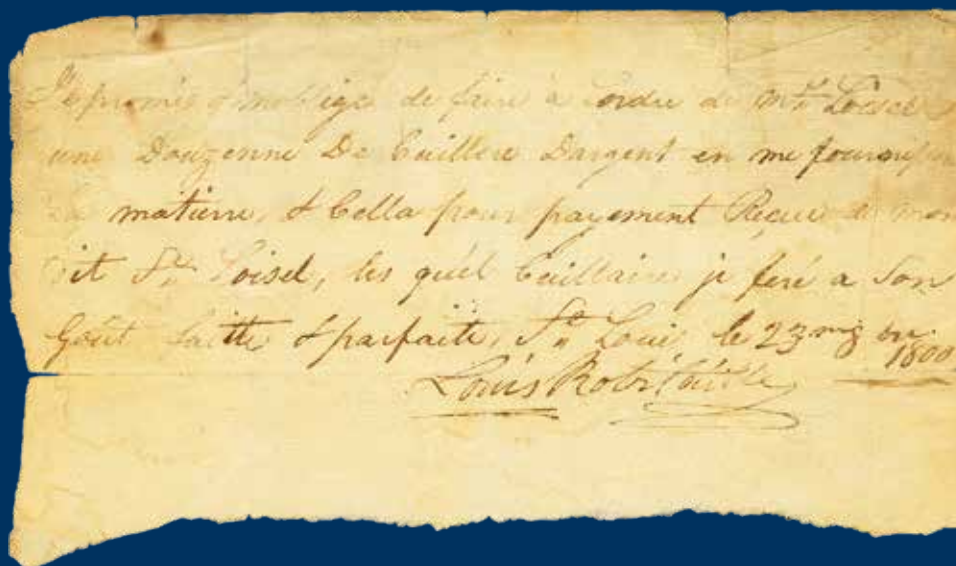 Je promés & moblige de faire à Lordre de Mr. Loisel
une Douzenne De Cuillere Dargent en me fournissan
La matierre, & Cella pour payement Reçue de mon
dit Sr. Loisel, les quél Cuillaire je feré a Son
Goût Faitte & parfaitte, St. Loui le 23
1800
Louis Robitaille